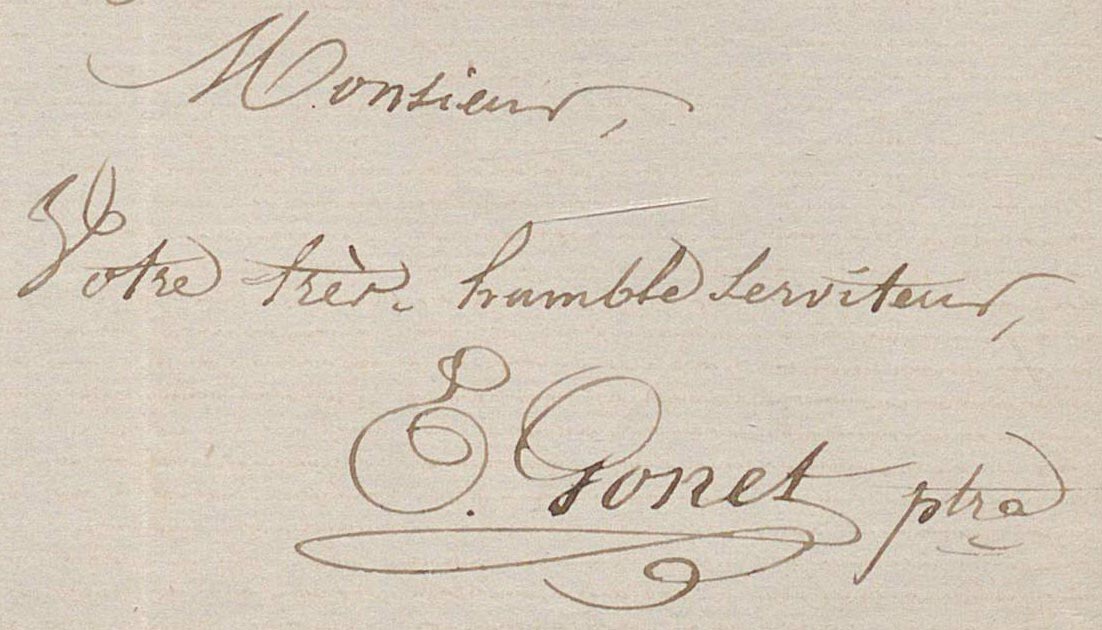 Monsieur,
Votre très-humble serviteur,
E. Gonet ptre